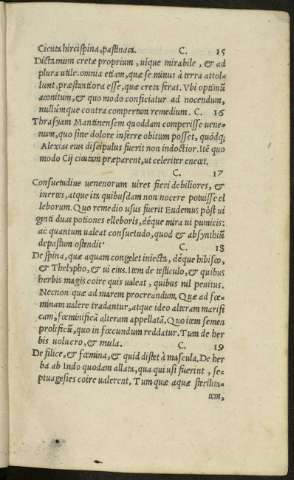 Cicuta hircispina, pastinaca. C. 15
Dictamum cretæ proprium, uique mirabile, & ad
plura utile. omnia etiam, quæ se minus à terra attol-
lunt, præstantiora esse, quæ creta ferat. Vbi optimū
aconitum, & quo modo conficiatur ad nocendum,
nullúmque contra compertum remedium. C. 16
Thrasyam Mantinensem quoddam comperisse uene-
num, quo sine dolore inferre obitum posset, quódq;
Alexias eius discipulus fuerit non indoctior. Et quo
modo Cij cicutam præparent, ut celeriter enecet.
C. 17
Consuetudine uenenorum uires fieri debiliores, &
inertes, atque ita quibusdam non nocere potuisse el
leborum. Quo remedio usus fuerit Eudemus pòst ui
ginti duas potiones ellebori, déque mira ui punicis:
ac quantum ualeat consuetudo, quod & absynthiū
depastum ostendit. C. 18
De spina, quæ aquam congelet iniecta, déque hibisco,
& Thelypho, & ui eius. Item de testiculo, & quibus
herbis magis coire quis ualeat, quibus nil penitus.
Necnon quæ ad marem procreandum, Quæ ad fœ-
minam ualere tradantur, atque ideo alteram marifi
cam, fœminificā alteram appellatā. Quo item semen
prolificū, quo in fœcundum reddatur. Tum de her
bis uolucro, & mula. C. 19
De filice, & fœmina, & quid distet à mascula. De her
ba ab Indo quodam allata, qua qui usi fuerint, se-
ptuagesies coire ualerent. Tum quæ aquæ sterilita-
tem,